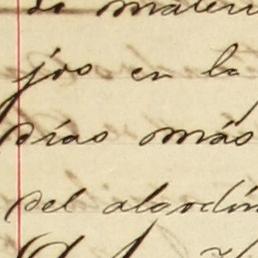 de materi
jos en la
días más
del algodón